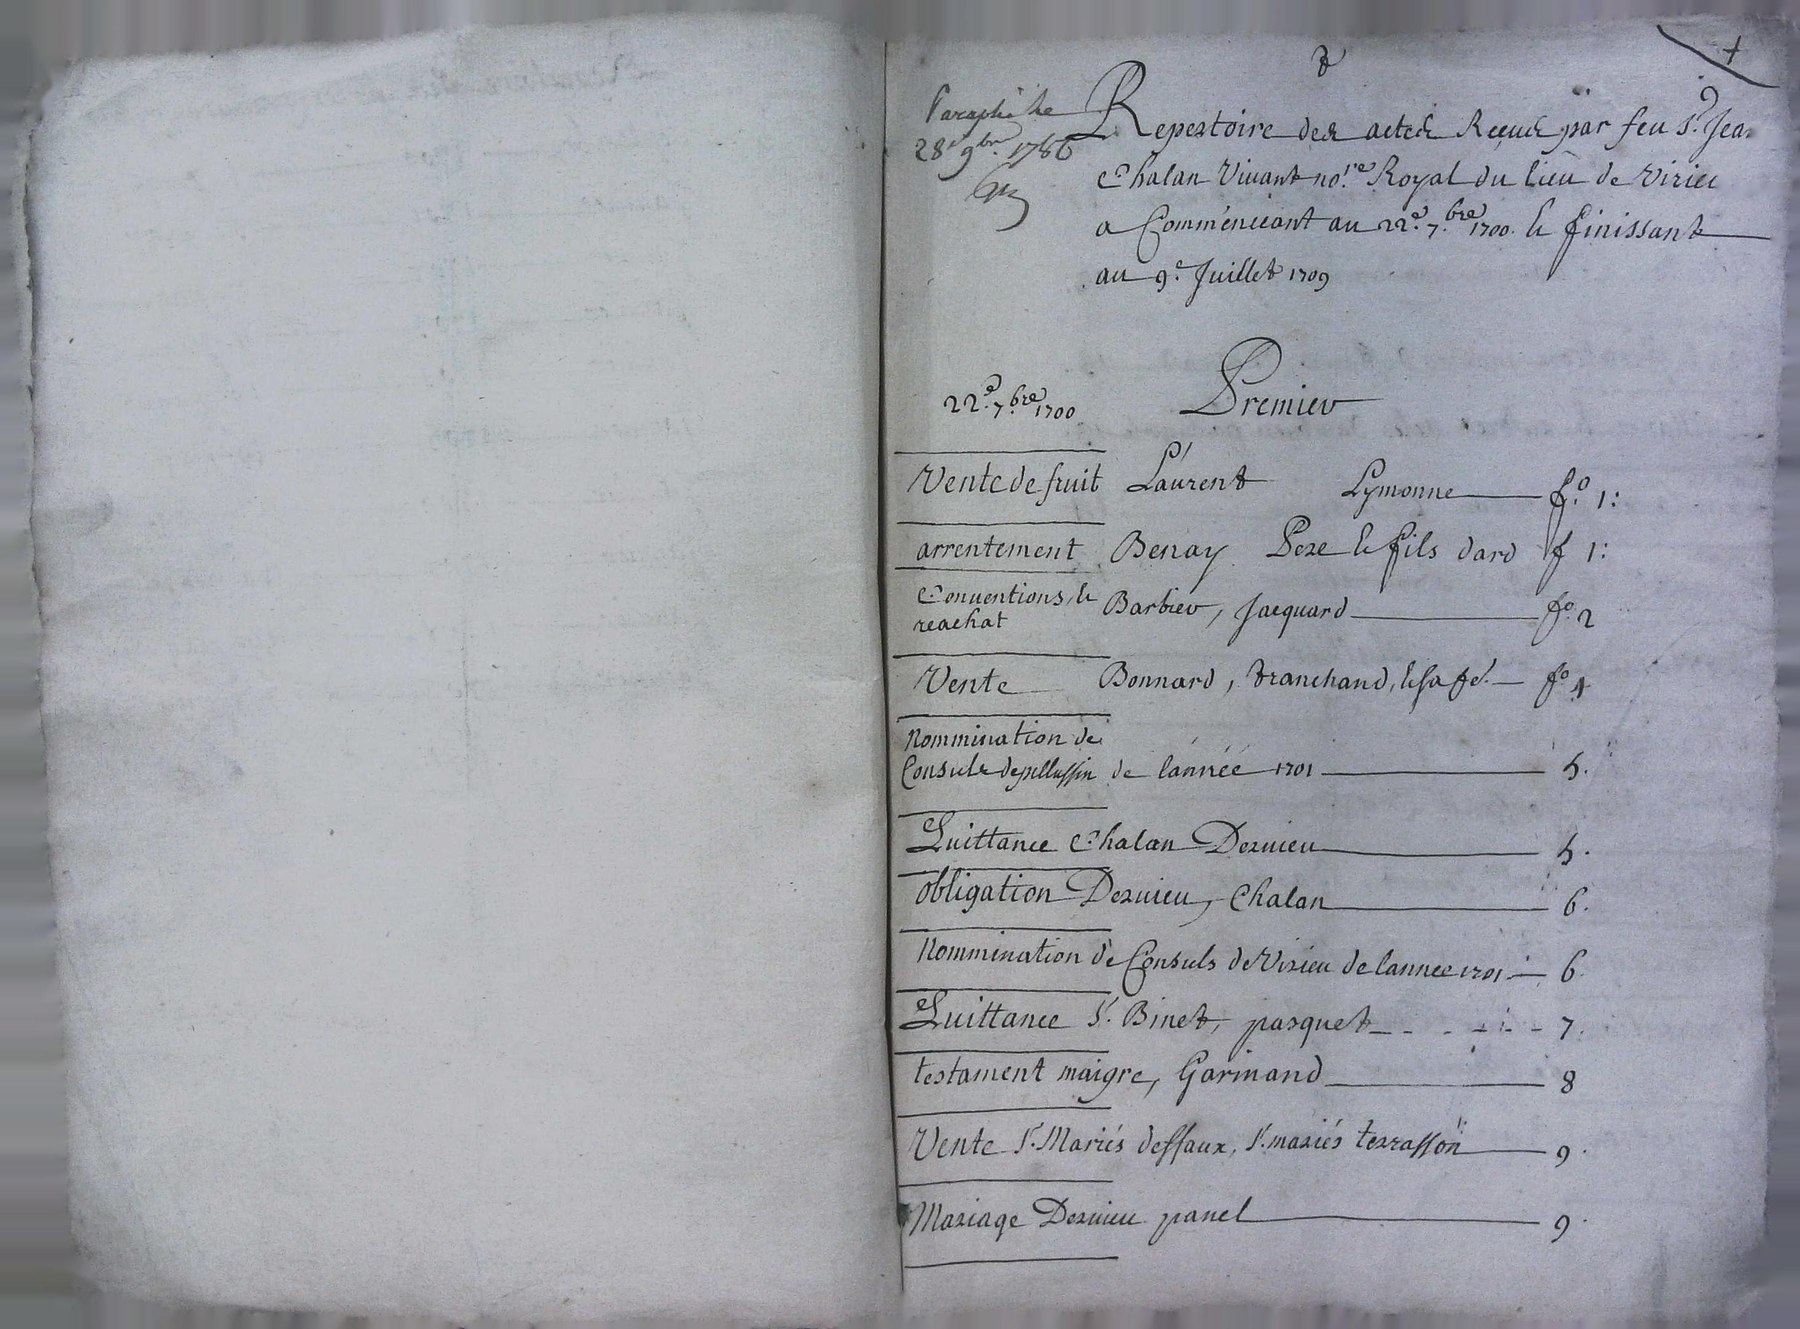 Paraphé le
28e 9bre 1786
Repertoire des actes Receus par feu Sr. Jean
Chalan Vivant nore. Royal du lieu de Virieu
a Commencant au 22e. 7.bre 1700. & finissant
au 9e. Juillet 1709
22e. 7.bre 1700
Premier
Vente de fruit Laurent Lymonne fo. 1:
arrentement Benay Pere & fils dard f 1:
Conventions, &
reachat Barbier, Jacquard fo. 2
Vente Bonnard, tranchand, & sa fe. fo 4
Nommination de
Consuls de pellussin de l'année 1701 5.
Quittance Chalan Dervieu 5.
obligation Dervieu, Chalan 6.
Nommination de Consuls de Virieu de lannee 1701 6.
Quittance Sr. Binet, pasquet 7.
testament maigre, Garinand 8
Vente Sr. Mariés deffaux, Sr. mariés terrasson 9.
Mariage Dervieu panel 9.